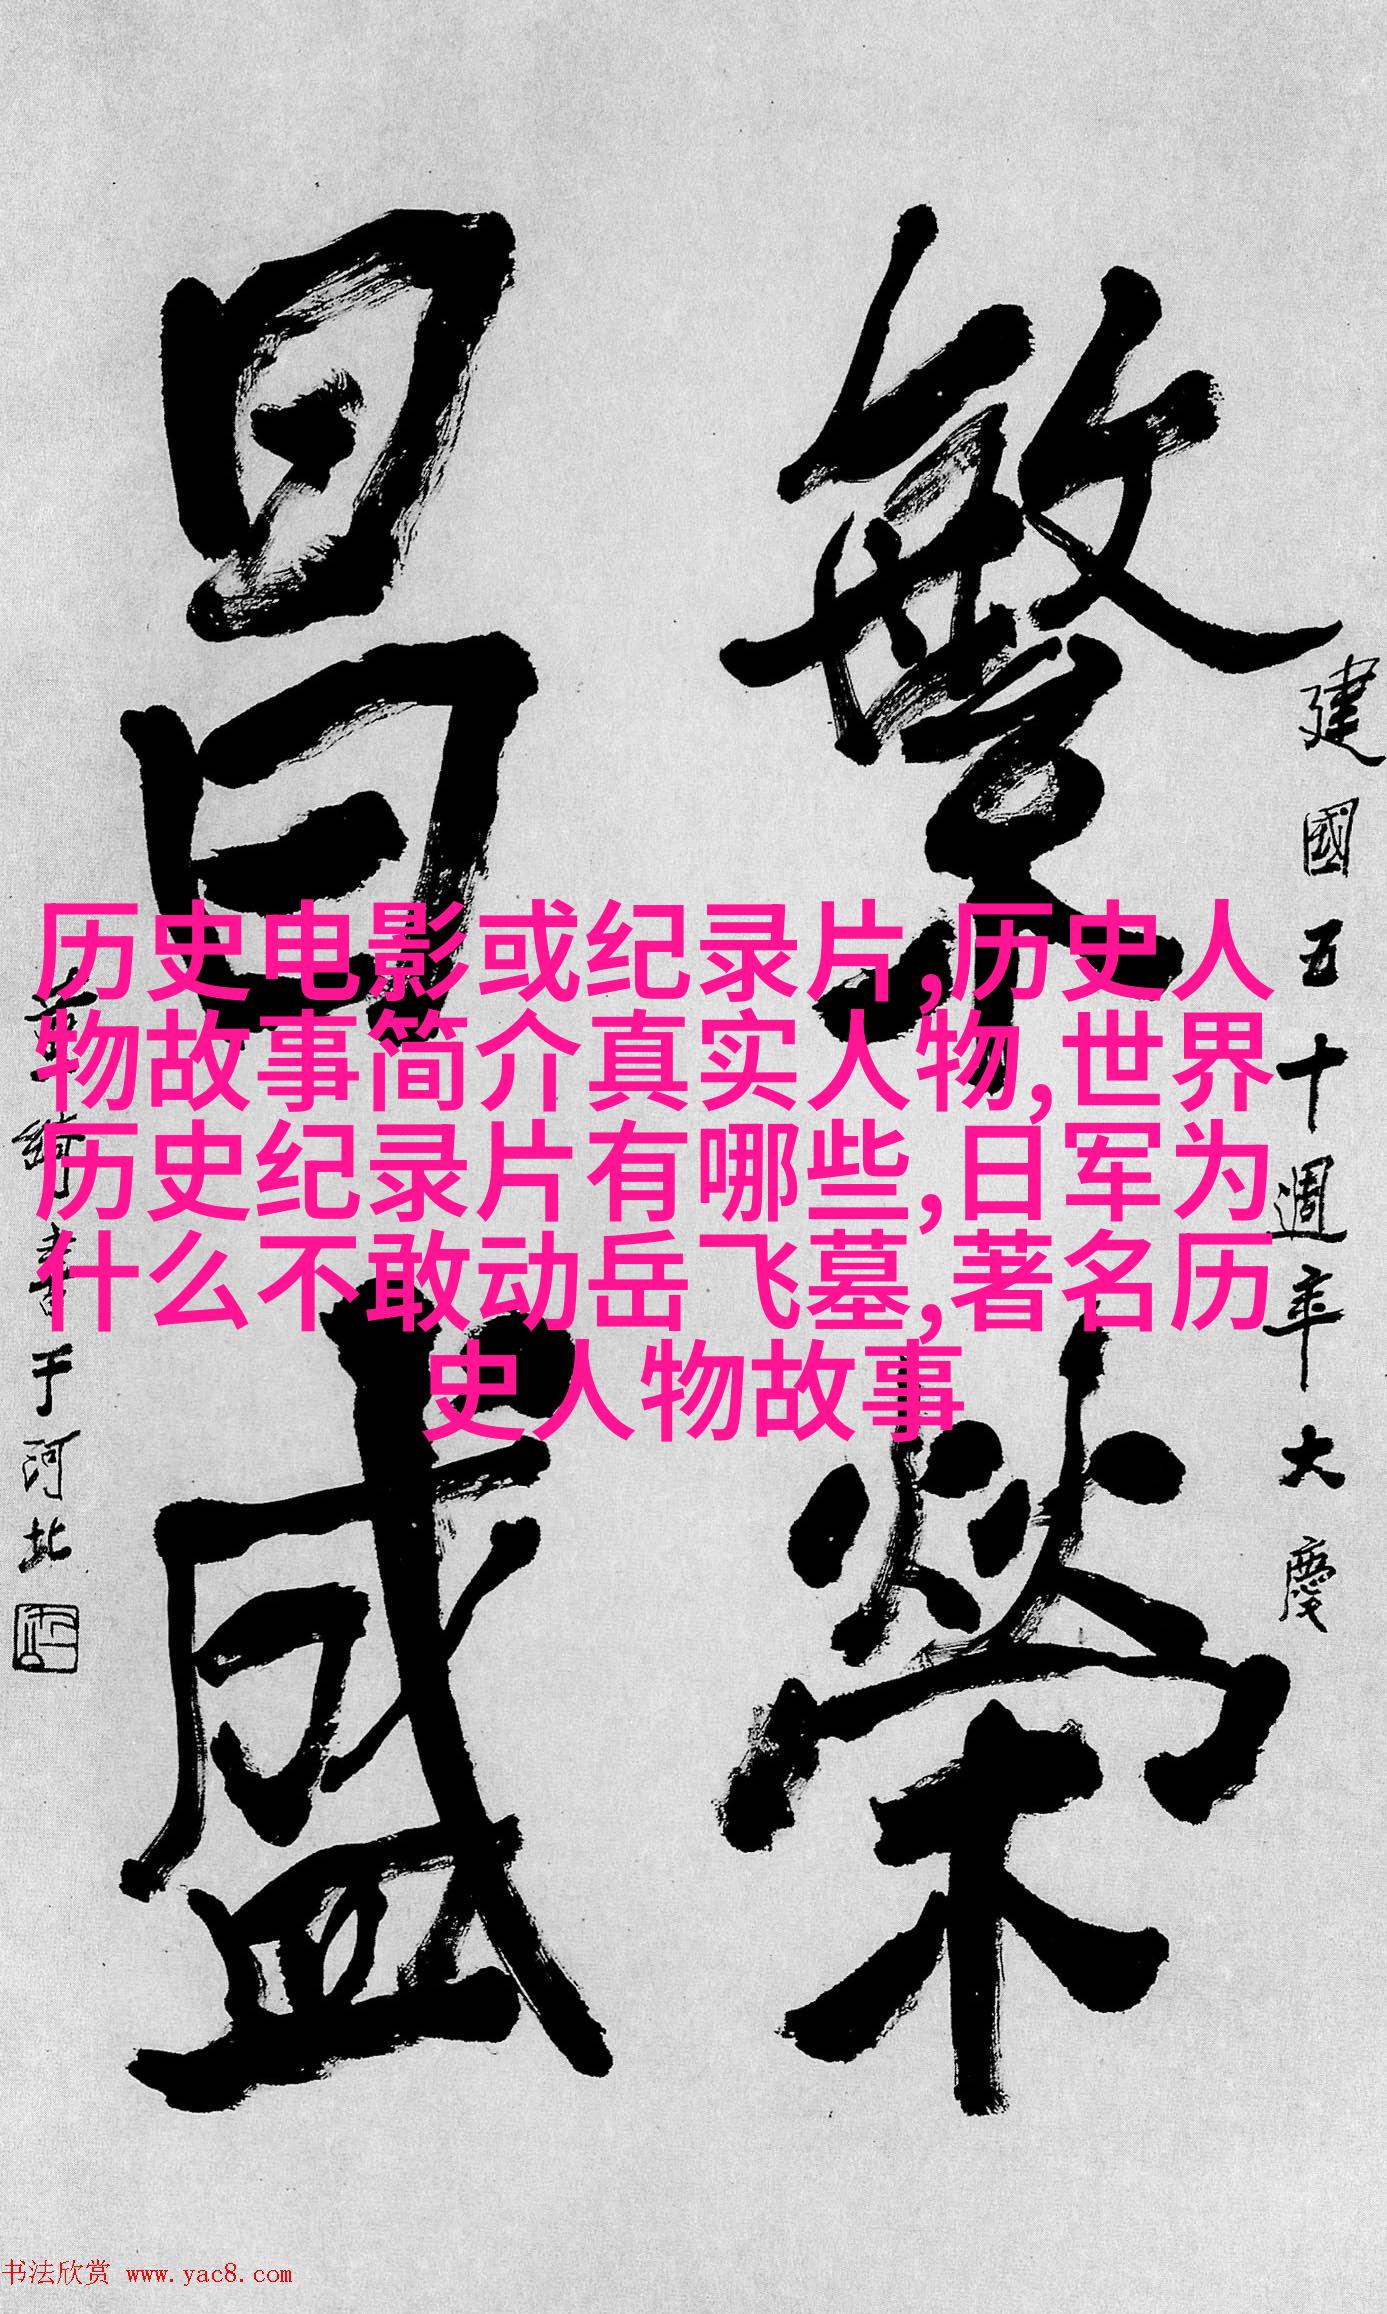 繁榮
昌盛
建國五十週年大慶
書于河北
历史电影或纪录片,历史人
物故事简介真实人物,世界
历史纪录片有哪些,日军为
什么不敢动岳飞墓,著名历
史人物故事
书法欣赏 www.yac8.com